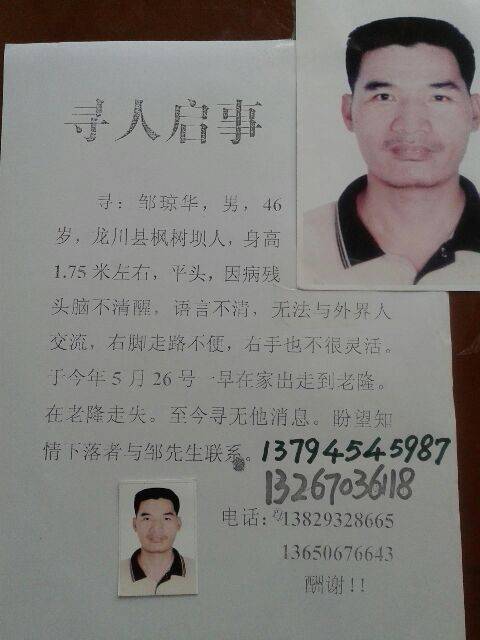 寻人启事
寻：邹琼华，男，46
岁，龙川县枫树坝人，身高
1.75 米左右，平头，因病残
头脑不清醒，语言不清，无法与外界人
交流，右脚走路不便，右手也不很灵活。
于今年 5 月 26 号一早在家出走到老隆。
在老隆走失。至今寻无他消息。盼望知
情下落者与邹先生联系。13794545987
13267036118
电话：13829328665
13650676643
酬谢！！